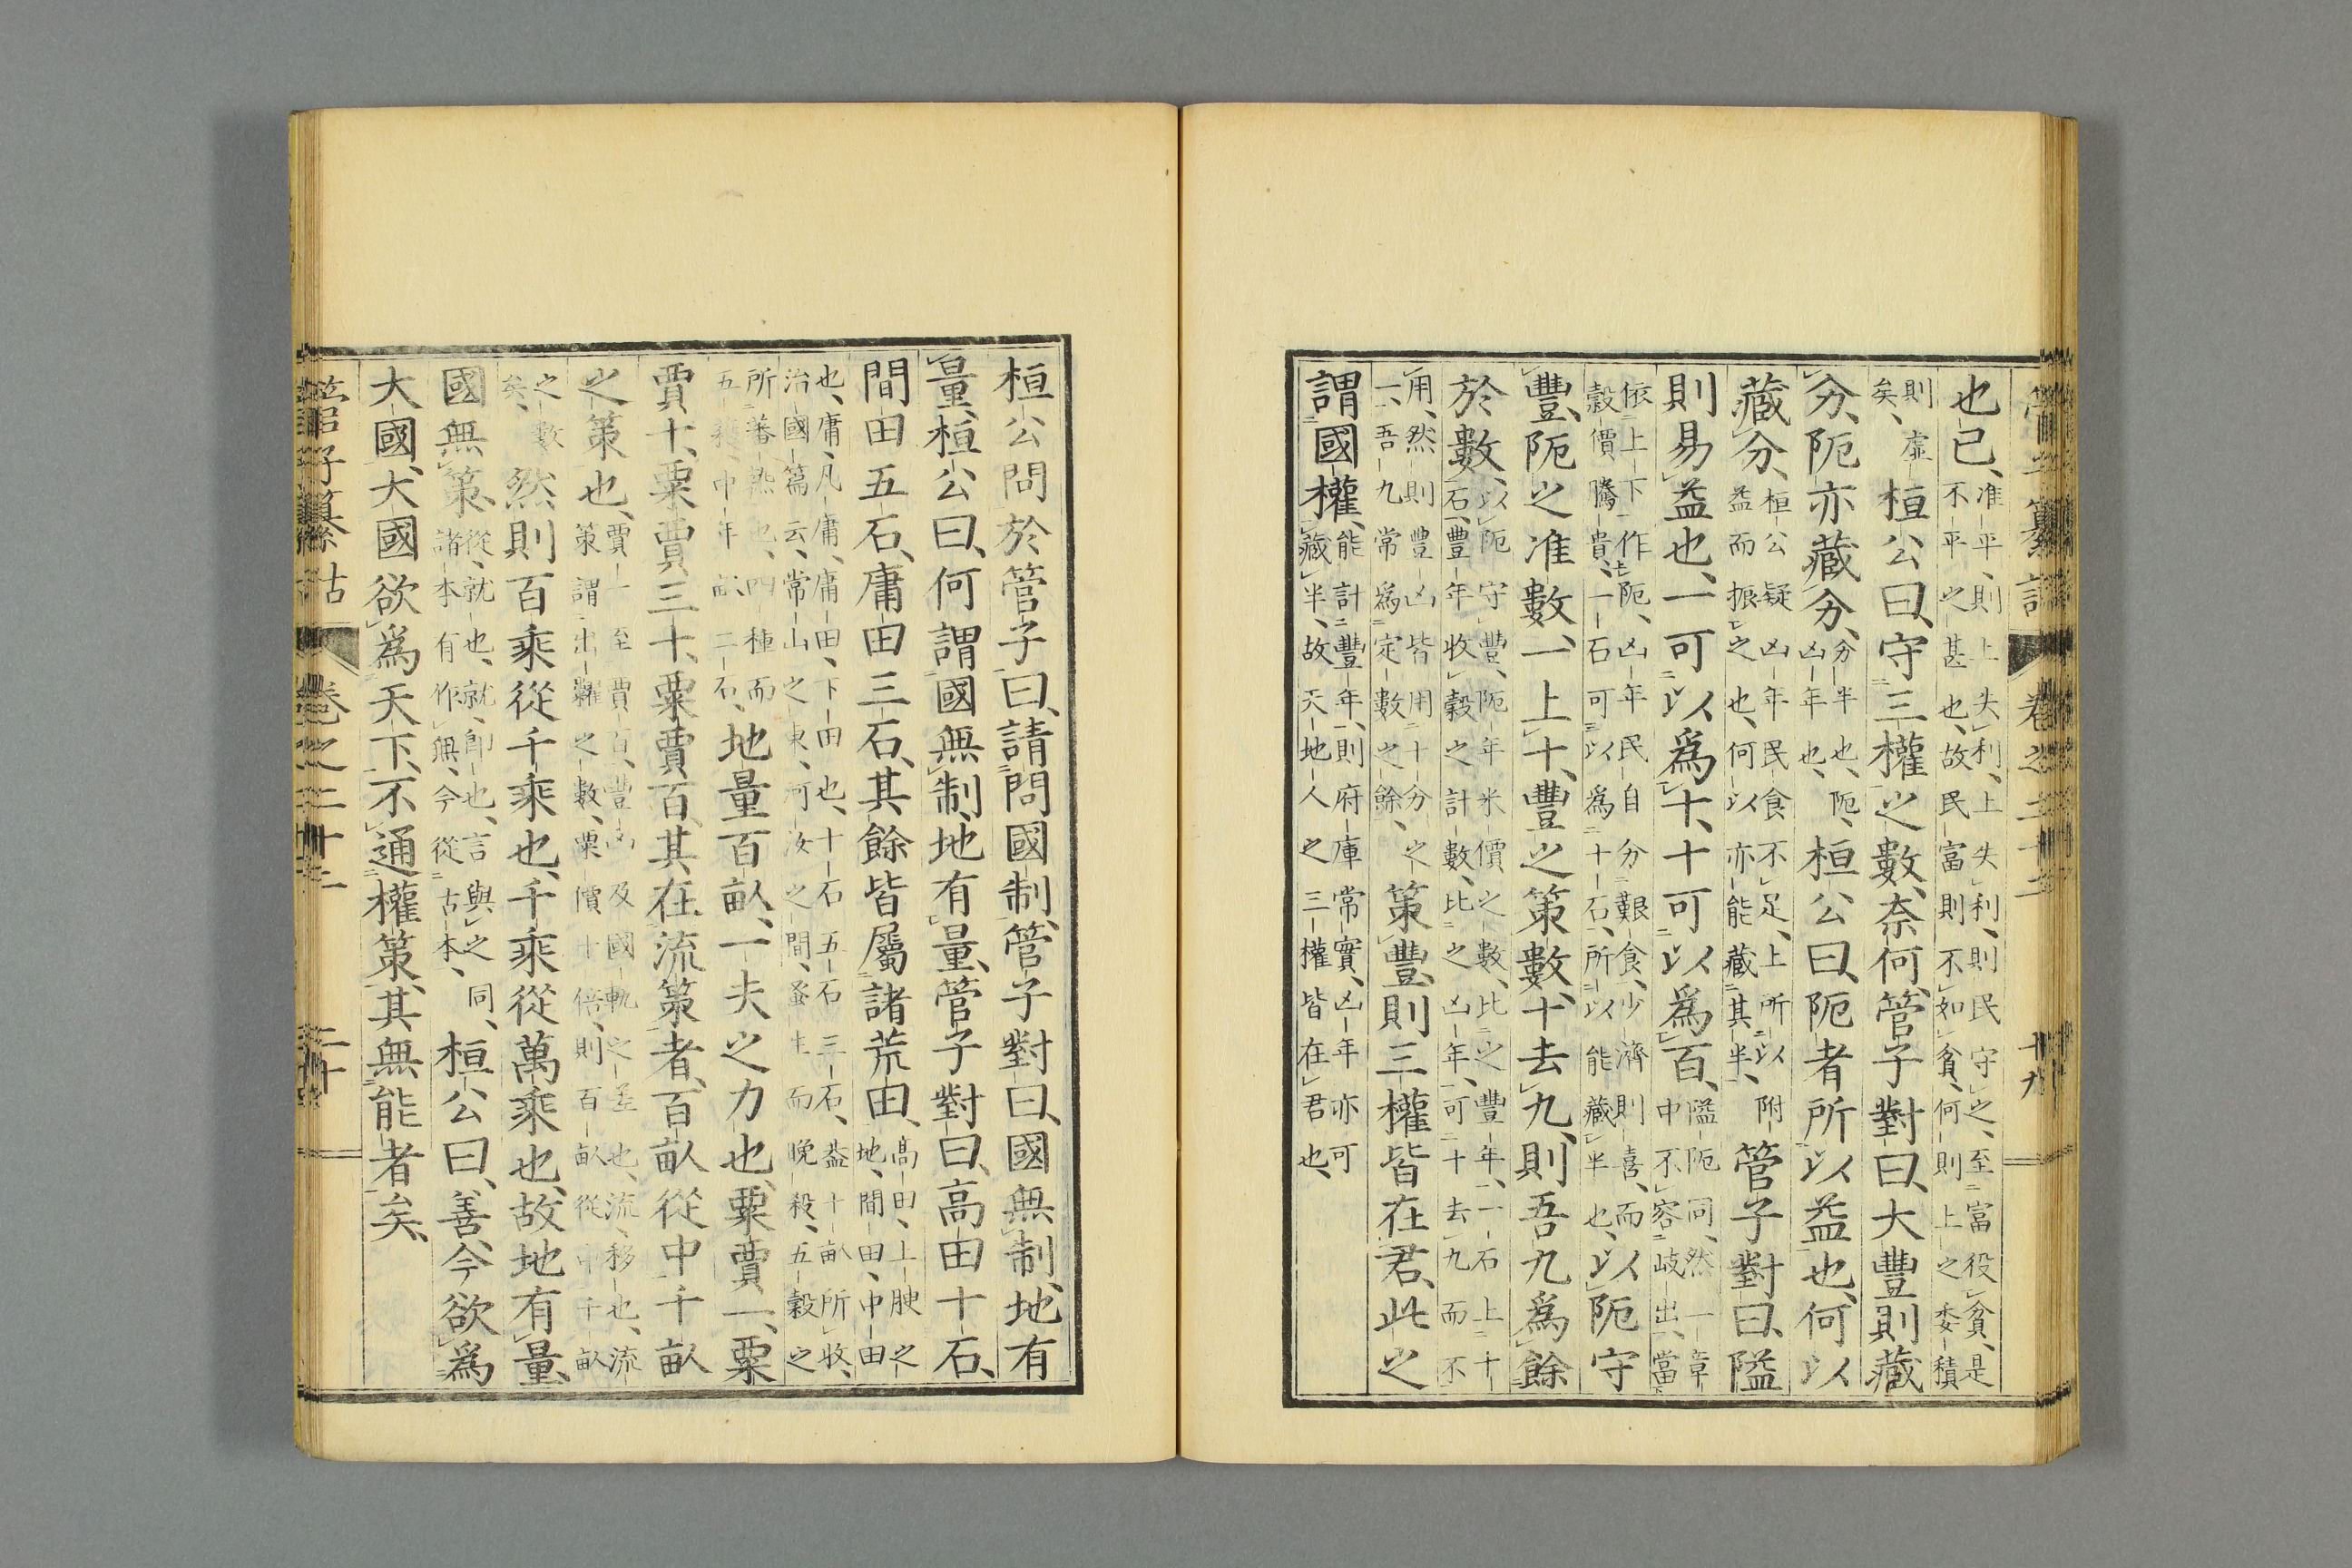 也已、准平、則上失利、上失利、則民守之、至富役貧、是
不平之甚也、故民富則不如貧、何則上之委積
則虛矣、桓公曰、守三權之數、奈何、管子對曰、大豐則藏
分、阨亦藏分、分半也、阨、凶年也、桓公曰、阨者所以益也、何以
藏分、桓公疑凶年民食不足、上所以附益而振之也、何以亦能藏其半、管子對曰、隘
則易益也、一可以爲十、十可以爲百、隘阨同、然一章中不容岐出、當
依上下作阨、凶年民自分艱食、少濟則喜、而
穀價騰貴、一石可以爲十石、所以能藏半也、以阨守
豐、阨之准數、一上十、豐之策數、十去九、則吾九爲餘
於數、以阨守豐、阨年米價之數、比之豐年、一石上十
石、豐年收穀之計數、比之凶年、可十去九而不
用、然則豐凶皆用十分之
一、吾九常爲定數之餘、策豐、則三權皆在君、此之
謂國權、能計豐年、則府庫常實、凶年亦可
藏半、故天地人之三權皆在君也、
卷之二十二
十九
桓公問於管子曰、請問國制、管子對曰、國無制、地有
量、桓公曰、何謂國無制、地有量、管子對曰、高田十石、
間田五石、庸田三石、其餘皆屬諸荒田、高田、上腴之
地、間田、中田
也、庸、凡庸、庸田、下田也、十石五石三石、葢十畝所收、
治國篇云、常山之東、河汝之間、蚤生而晚殺、五穀之
所蕃熟也、四種而
五穫、中年畝二石、地量百畝、一夫之力也、粟賈一、粟
賈十、粟賈三十、粟賈百、其在流策者、百畝從中千畝
之策也、賈一至賈百、豐凶及國軌之差也、流、移也、流
策謂出糶之數、粟價十倍、則百畝從中千畝
之數矣、然則百乘從千乘也、千乘從萬乘也、故地有量、
國無策、從、就也、就、卽也、言與之同、
諸本有作無、今從古本、桓公曰、善、今欲爲
大國、大國欲爲天下、不通權策、其無能者矣、
管子纂詁
卷之二十二
二十